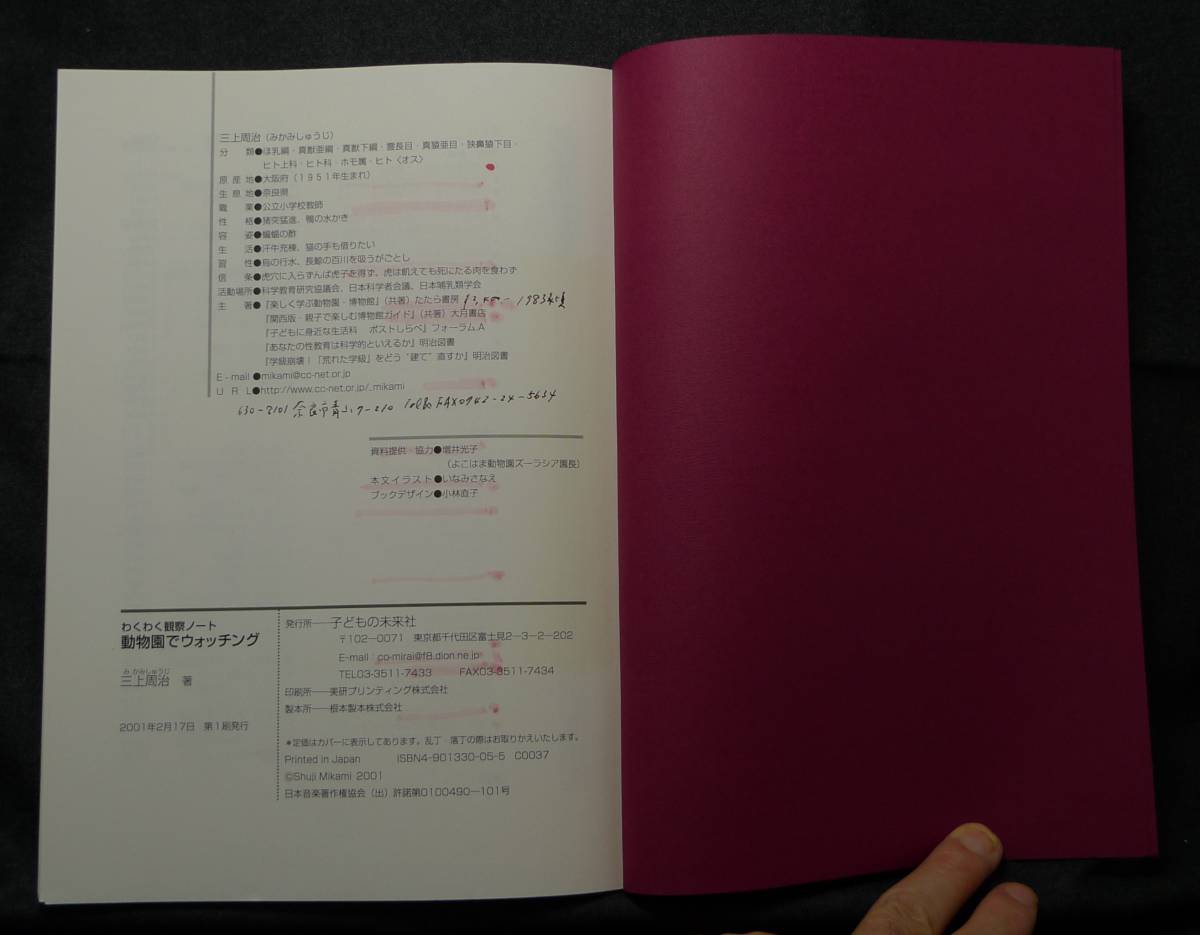 三上周治(みかみしゅうじ)
分類●ほ乳綱・真獣亜綱・真獣下綱・霊長目・真猿亜目・狭鼻猿下目・
ヒト上科・ヒト科・ホモ属・ヒト〈オス〉
原産地●大阪府(1951年生まれ)
生息地●奈良県
職業●公立小学校教師
性格●猪突猛進、鴨の水かき
容姿●蝙蝠の酢
生活●汗牛充棟、猫の手も借りたい
習性●烏の行水、長鯨の百川を吸うがごとし
信条●虎穴に入らずんば虎子を得ず、虎は飢えても死にたる肉を食わず
活動場所●科学教育研究協議会、日本科学者会議、日本哺乳類学会
主著●『楽しく学ぶ動物園・博物館』(共著)たたら書房 1983
『関西版・親子で楽しむ博物館ガイド』(共著)大月書店
『子どもに身近な生活科 ポストしらべ』フォーラム.A
『あなたの性教育は科学的といえるか』明治図書
『学級崩壊!「荒れた学級」をどう“建て”直すか』明治図書
E-mail●mikami@cc-net.or.jp
URL●http://www.cc-net.or.jp/_mikami
630-8101 奈良市青山7-210 Tel& FAX0742-24-5634
資料提供・協力●増井光子
(よこはま動物園ズーラシア園長)
本文イラスト●いなみさなえ
ブックデザイン●小林直子
わくわく観察ノート
動物園でウォッチング
みかみしゅうじ
三上周治 著
2001年2月17日 第1刷発行
発行所──子どもの未来社
〒102―0071 東京都千代田区富士見2―3―2―202
E-mail:co-mirai@f8.dion.ne.jp
TEL03-3511-7433 FAX03-3511-7434
印刷所──美研プリンティング株式会社
製本所──根本製本株式会社
*定価はカバーに表示してあります。乱丁・落丁の際はお取りかえいたします。
Printed in Japan ISBN4-901330-05-5 C0037
©Shuji Mikami 2001
日本音楽著作権協会(出)許諾第0100490―101号